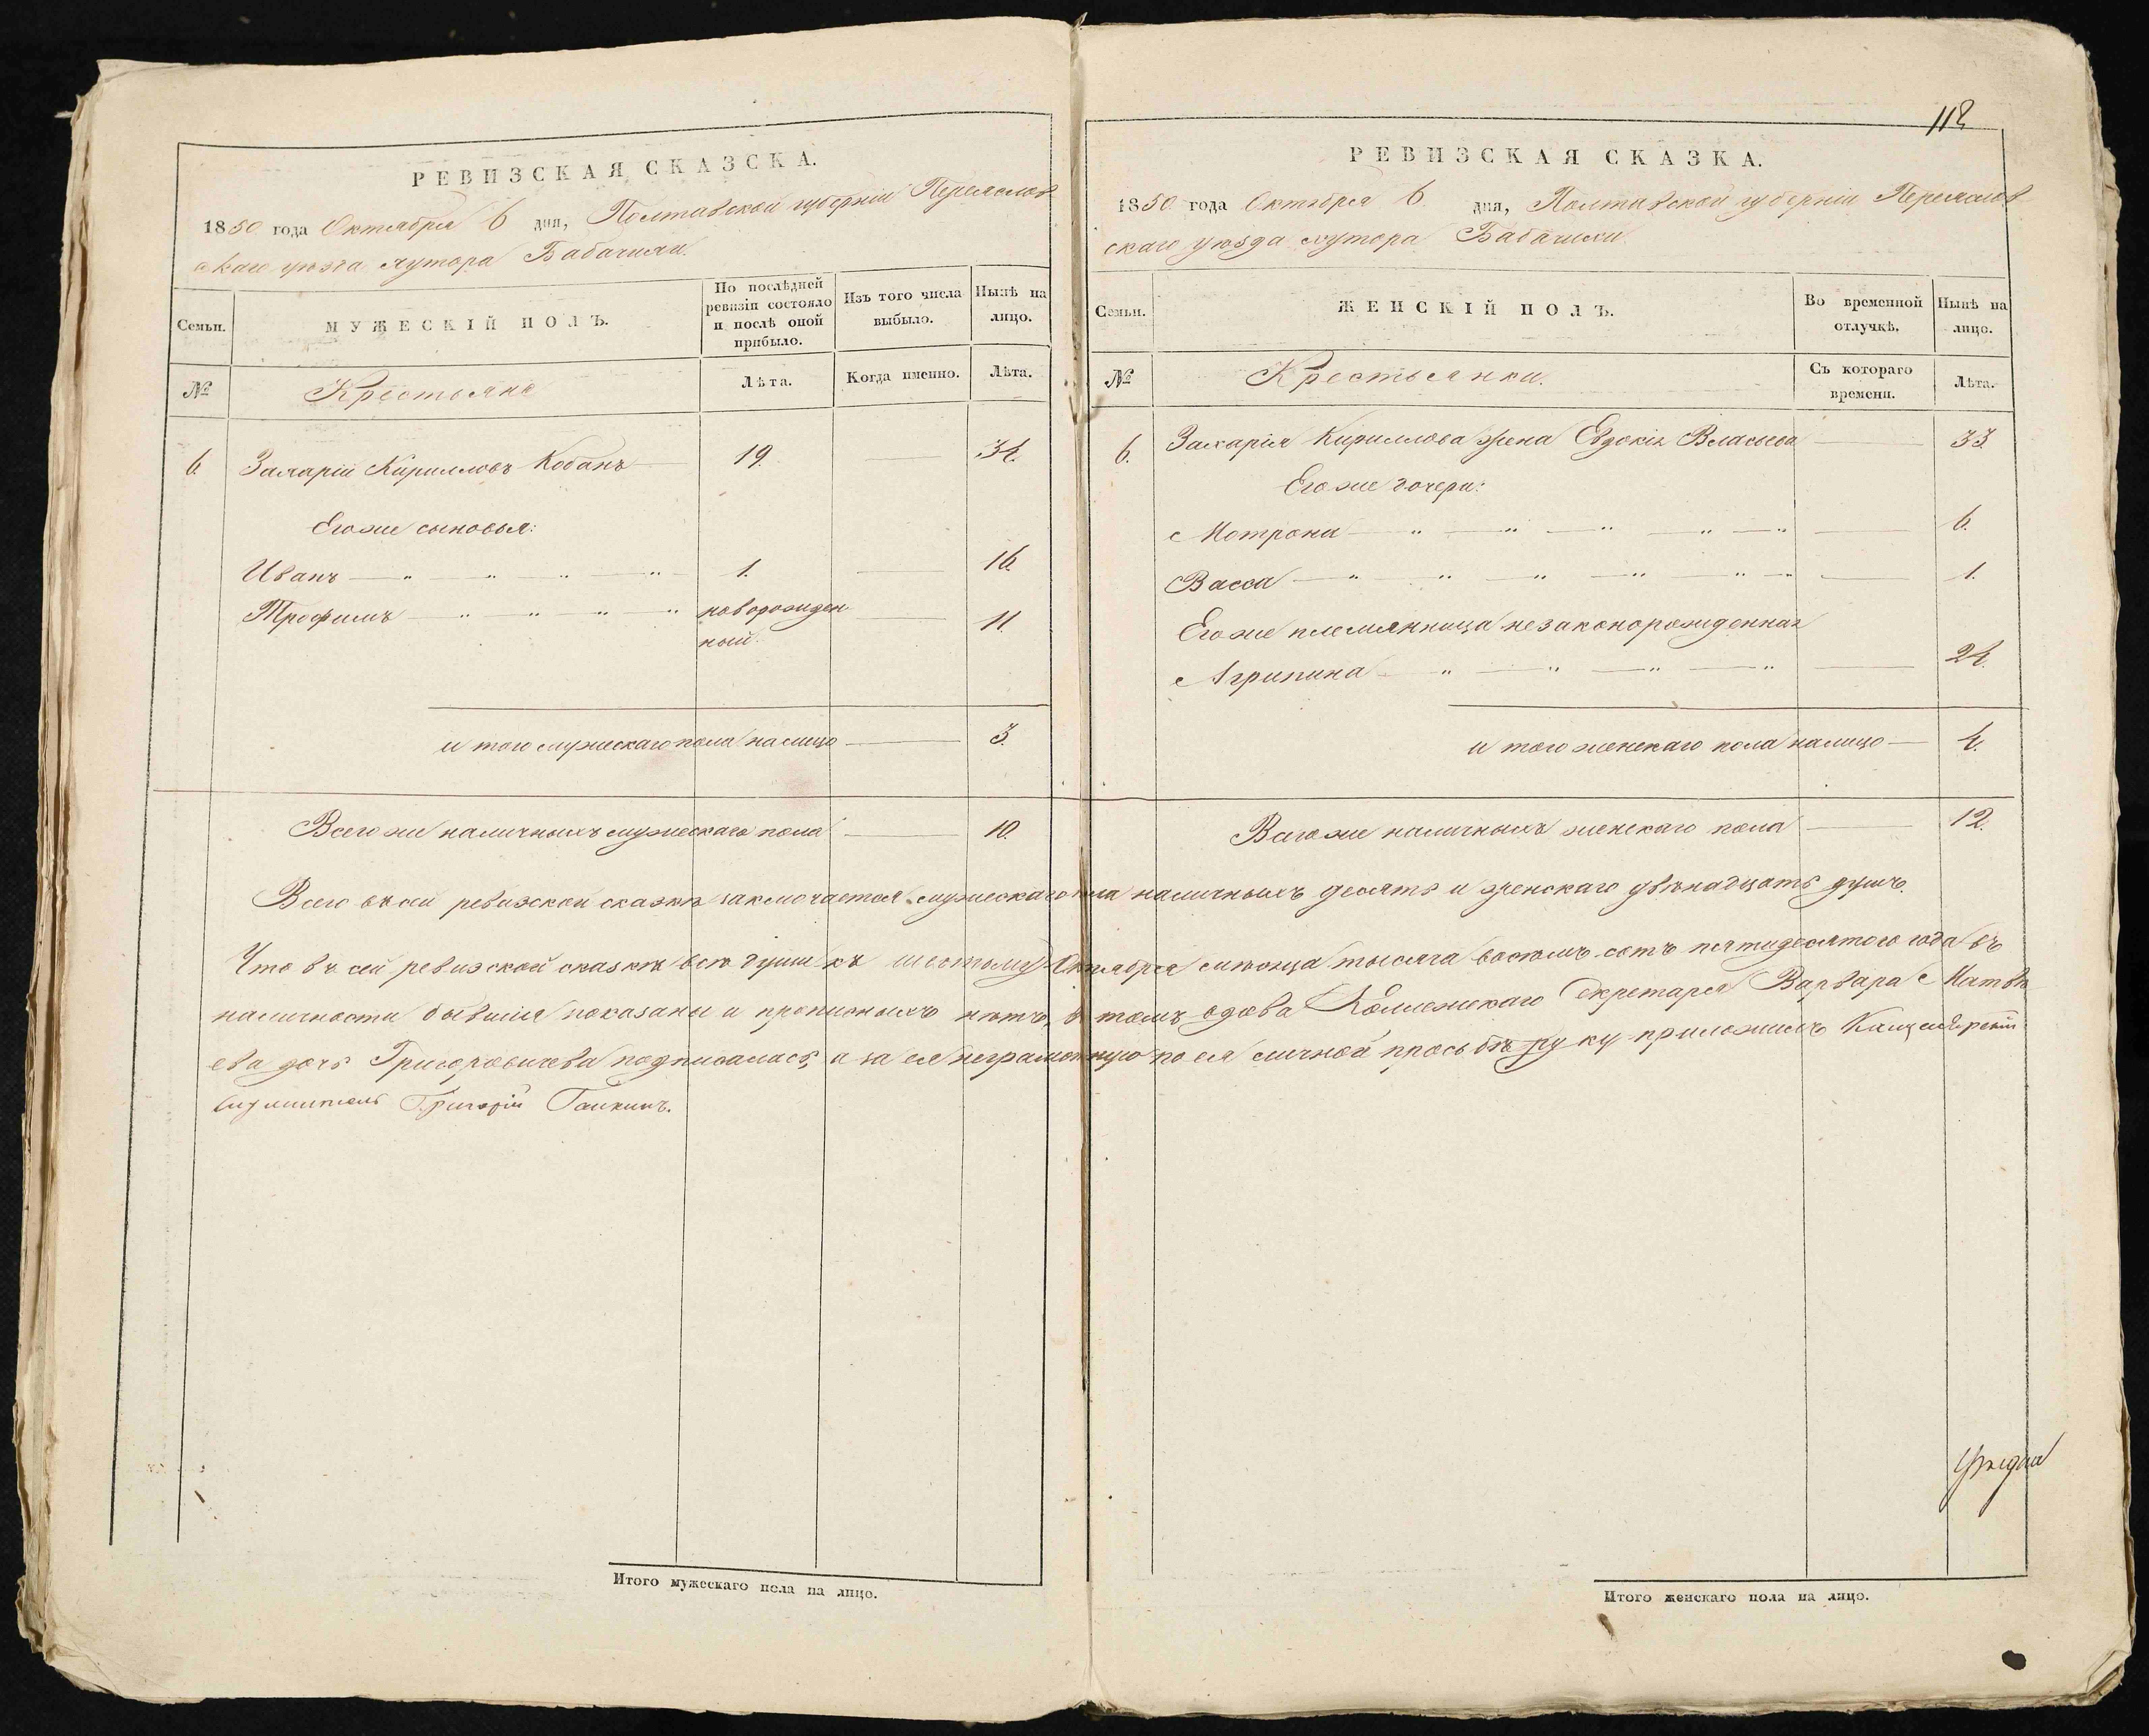 РЕВИЗСКАЯ СКАЗСКА.
1850 года Октября 6 дня, Полтавской губерніи Переяслов
скаго уѣзда хутора Бабачихи.
Семьи.
МУЖЕСКІЙ ПОЛЪ.
По послѣдней ревизіи состояло и послѣ оной прибыло.
Изъ того числа выбыло.
Нынѣ на лицо.
№
Крестьяне
Лѣта.
Когда именно.
Лѣта.
6. Захарій Кирилловъ Кобанъ 19. 34.
Его же сыновья:
Иванъ — „ — „ — „ — „ 1. 16.
Трофимъ — „ — „ — „ — „ новорожден
ный. 11.
и того мужескаго пола налицо — 3.
Всего же наличныхъ мужескаго пола — 10.
112
РЕВИЗСКАЯ СКАЗКА.
1850 года Октября 6 дня, Полтавской губерніи Переяслов
скаго уѣзда хутора Бабачихи.
Семьи.
ЖЕНСКІЙ ПОЛЪ.
Во временной отлучкѣ.
Нынѣ на лицо.
№
Крестьянки.
Съ котораго времени.
Лѣта.
6. Захарія Кириллова жена Евдокія Власьева — 33.
Его же дочери:
Мотрона — „ — „ — „ — „ — „ — 6.
Васса — „ — „ — „ — „ — „ — 1.
Его же племянница незаконорожденная
Агрипина — „ — „ — „ — „ — 24.
и того женскаго пола налицо — 4.
Всего же наличныхъ женскаго пола — 12.
Всего въ сей ревизской сказкѣ заключается мужескаго пола наличныхъ десять и женскаго двѣнадцать душъ.
Что въ сей ревизской сказкѣ всѣ души къ шестому Октября мѣсяца тысяча восемь сотъ пятидесятого года въ
наличности бывшія показаны и прописныхъ нѣтъ, въ томъ вдова Коллежскаго Секретаря Варвара Матвѣ
ева дочь Григоровичева подписалась, а за ея неграмотную по ея личной просьбѣ руку приложилъ Канцелярскій
служитель Григорій Галкинъ.
Итого мужескаго пола на лицо.
Итого женскаго пола на лицо.